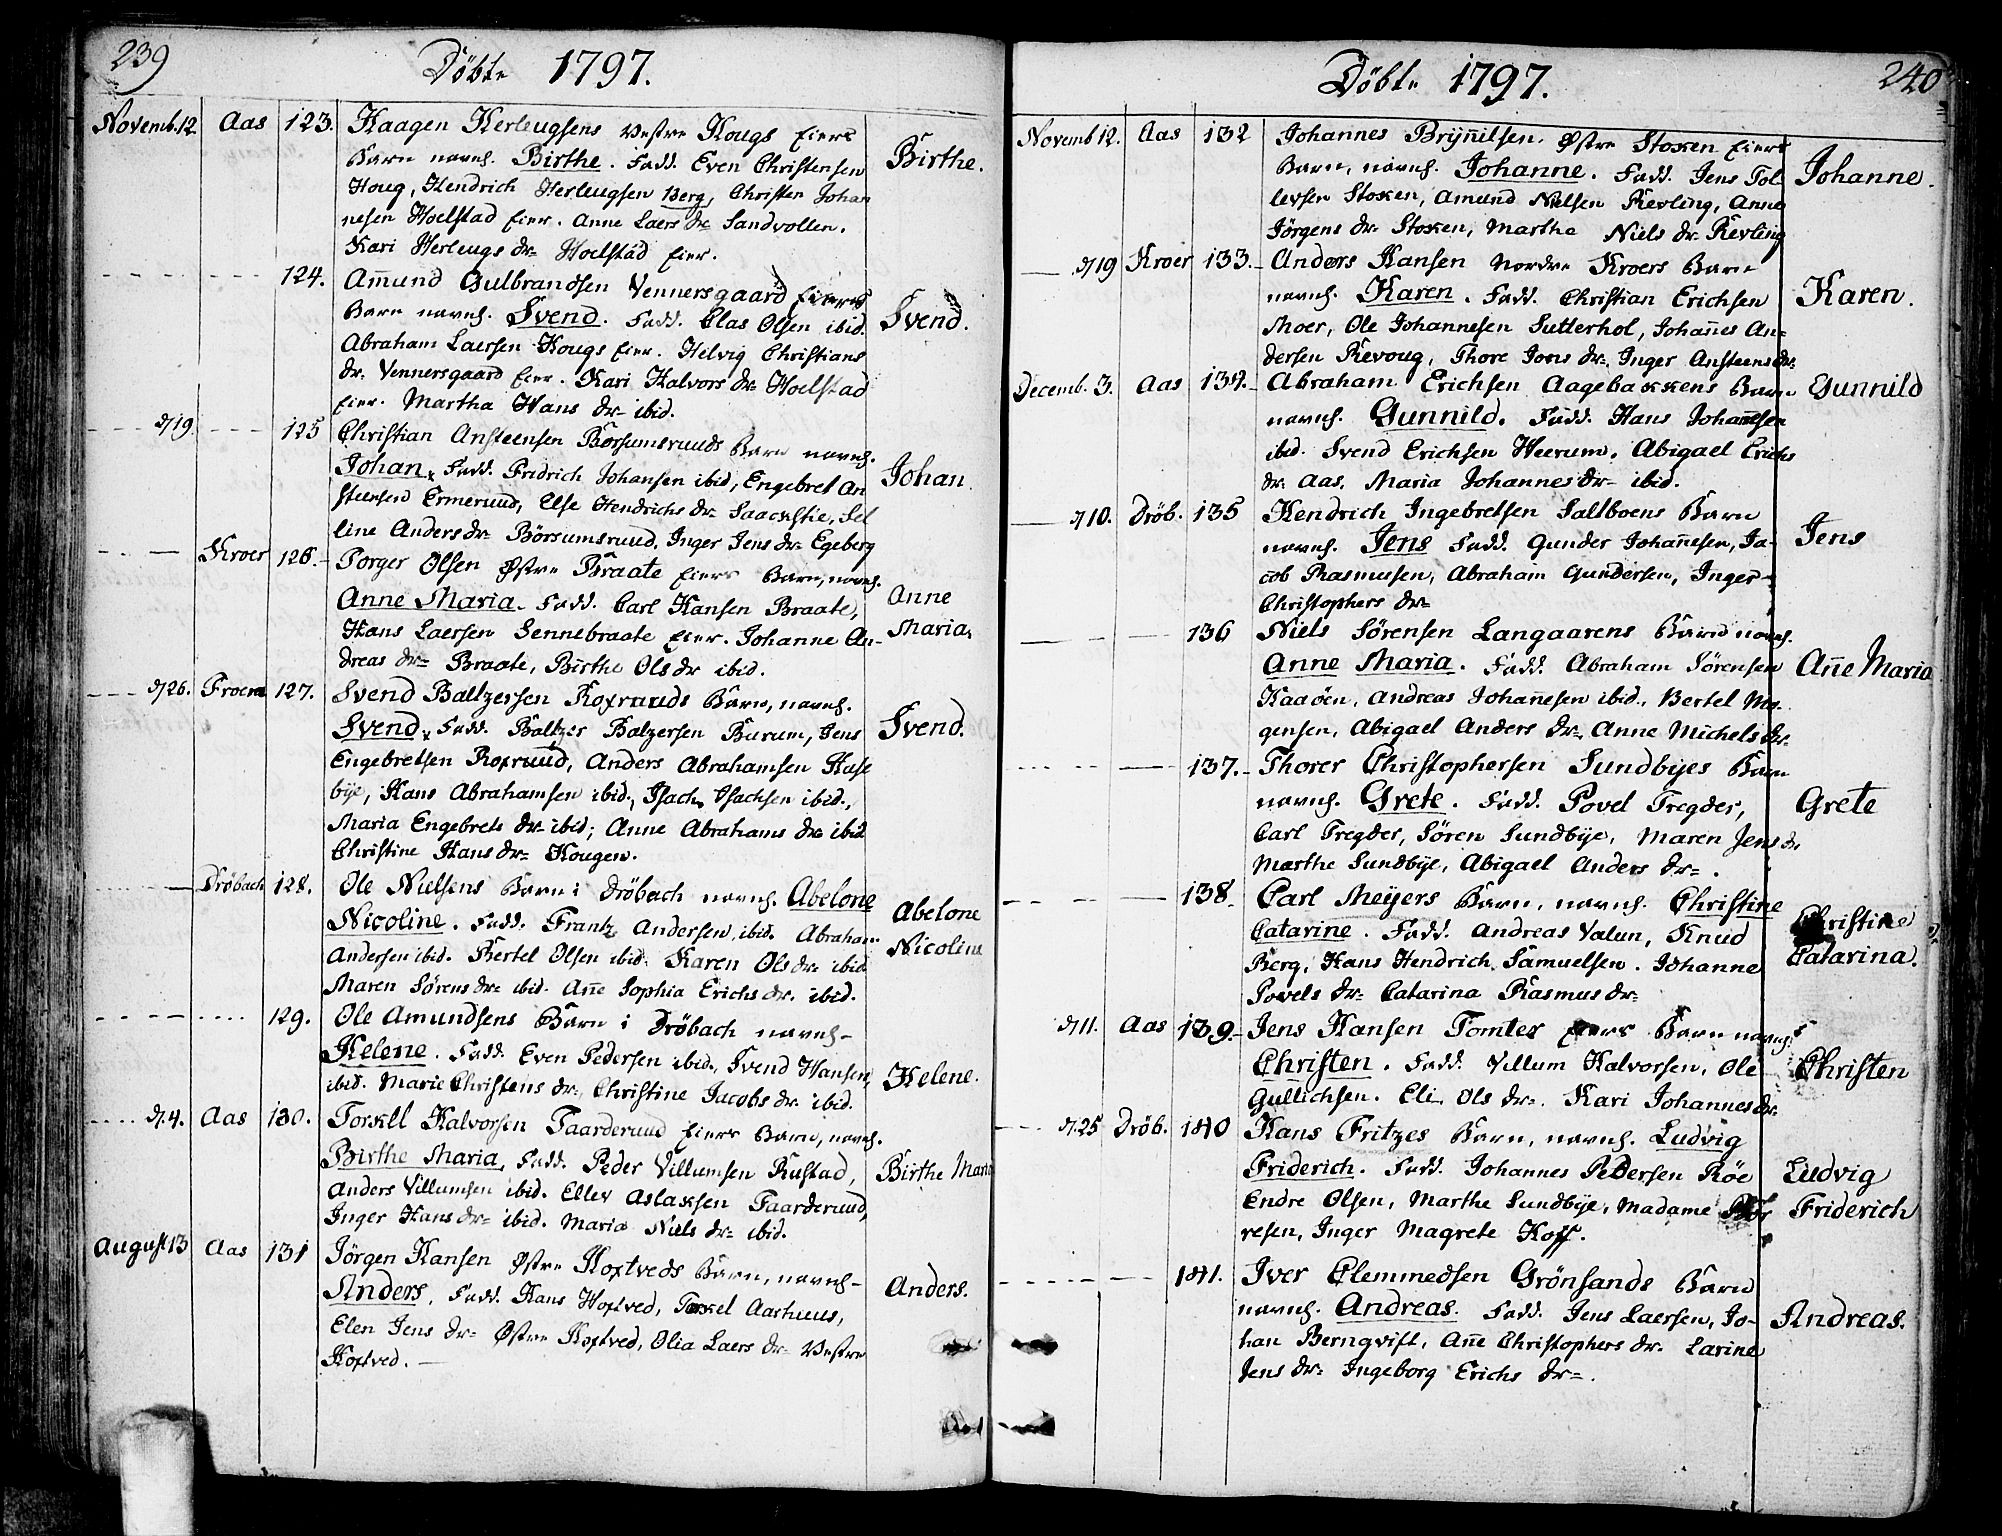 239
Döbte 1797.
Novemb. 12. Aas 123. Haagen Herleugsens Vestre Hougs Eiers
Barn navnl. Birthe. Fadd. Even Christensen
Houg, Hendrich Herleugsen Berg, Christen Johan
nesen Hoelstad Eier. Anne Laers dr. Sandvollen.
Kari Herleugs dr= Hoelstad Eier.
Birthe.
124. Am̄und Gulbrandsen Vennersgaard Eiers
Barn navnl. Svend. Fadd. Clas Olsen ibid.
Abraham Laersen Hougs Eier. Helvig Christians
dr. Vennersgaard Eier. Kari Halvors dr= Hoelstad
Eier. Martha Hans dr= ibid.
Svend.
d/19. 125 Christian Ansteensen Börsumsruuds Barn navnl.
Johan. Fadd. Fridrich Johansen ibid, Engebret An
steensen Ermeruud, Else Hendrichs dr= Saackstie, Sel
line Anders dr= Börsumsruud. Inger Jens dr= Egeberg
Johan.
Kroer 126. Torger Olsen Østre Braate Eiers Barn, navnl.
Anne Maria. Fadd. Carl Hansen Braate,
Hans Laersen Sennebraate Eier. Johanne An-
dreas dr= Braate, Birthe Ols dr ibid.
Anne
Maria.
d/26. Froen 127. Svend Baltzersen Roxruuds Barn, navnl.
Svend. Fadd. Baltzer Balzersen Burum, Jens
Engebretsen Roxruud, Anders Abrahamsen Huse
bije, Hans Abrahamsen ibid., Isach Isachsen ibid.,
Maria Engebrets dr= ibid; Anne Abrahams dr= ibid
Christine Hans dr= Hougen.
Svend.
Dröbach 128. Ole Nielsens Barn i Dröbach navnl. Abelone
Nicoline. Fadd. Frantz Andersen, ibid. Abraham
Andersen ibid. Bertel Olsen ibid. Karen Ols dr= ibid
Maren Sörens dr= ibid. An̄e Sophia Erichs dr. ibid.
Abelone
Nicoline
129. Ole Amundsens Barn i Dröbach navnl-
Helene. Fadd. Even Pedersen ibid., Svend Hansen,
ibid. Marie Christens dr. Christine Jacobs dr. ibid.
Helene.
d/.4. Aas 130. Torkell Halvorsen Taarderuud Eiers Barn, navnl.
Birthe Maria, Fadd. Peder Villumsen Rustad,
Anders Villumsen ibid. Ellev Aslaksen Taarderuud,
Inger Hans dr= ibid. Maria Niels dr= ibid.
Birthe Maria
August 13 Aas 131 Jörgen Hansen Østre Hoxtveds Barn, navnl-
Anders, Fadd. Hans Hoxtved, Torkel Aarhuus,
Elen Jens dr= Østre Hoxtved, Olia Laers dr= Vestre
Hoxtved. —
Anders.
240
Döbte 1797.
Novemb 12. Aas 132 Johannes Brijn̄ilsen, Østre Stokken Eiers
Barn, navnl. Johanne. Fadd. Jens Tol
levsen Stokken, Amund Nielsen Revling, Anne
Jörgens dr= Stokken, Marthe Niels dr= Revling
Johanne.
d/19 Kroer 133. Anders Hansen Nordre Kroers Barn
navnl. Karen. Fadd. Christian Erichsen
Moer, Ole Johannesen Sutterhol, Johan̄es An=
dersen Revoug, Thore Joens dr=. Inger Ansteens dr.
Karen.
Decemb. 3. Aas 134. Abraham Erichsen Aagebakkens Barn
navnl. Gunnild. Fadd. Hans Johannesen
ibid. Svend Erichsen Heerum. Abigael Erichs
dr. Aas. Maria Johannes dr= ibid.
Gunnild
d/10. Dröb. 135 Hendrich Ingebretsen Saltboens Barn
navnl. Jens Fadd. Gunder Johan̄esen, Ja-
cob Rasmusen, Abraham Gundersen, Inger
Christophers dr=
Jens
136 Niels Sörensen Langaarens Barn navnl.
Anne Maria. Fadd. Abraham Sörensen
Haaöen, Andreas Johan̄esen ibid., Bertel Mo
gensen, Abigael Anders dr=, Anne Michels dr=
An̄e Maria
137. Thorer Christophersen Sundbyes Barn
navnl. Grete. Fadd. Povel Tregder,
Carl Tregder, Sören Sundbije, Maren Jens dr
Marthe Sundbije, Abigael Anders dr=.
Grete
138. Carl Meijers Barn, navnl. Christine
Catarine. Fadd. Andreas Valun, Knud
Berg, Hans Hendrich Samuelsen. Johanne
Povels dr= Catarina Rasmus dr=
Christine
Catarina.
d/11. Aas 139. Jens Hansen Tomter Eiers Barn navnl.
Christen. Fadd. Villum Halvorsen, Ole
Gullichsen. Eli Ols dr=. Kari Johannes dr.
Christen
d/.25 Dröb. 140 Hans Fritzes Barn, navnl. Ludvig
Friderich. Fadd. Johannes Pedersen Röe
Endre Olsen, Marthe Sundbije, Madame
resen, Inger Magrete Hoff.
Ludvig
Friderich
141. Iver Clemmedsen Grönsands Barn
navnl. Andreas. Fadd. Jens Laersen, Jo-
han Bernqvist, An̄e Christophers dr. Larine
Jens dr= Ingeborg Erichs dr=.
Andreas.